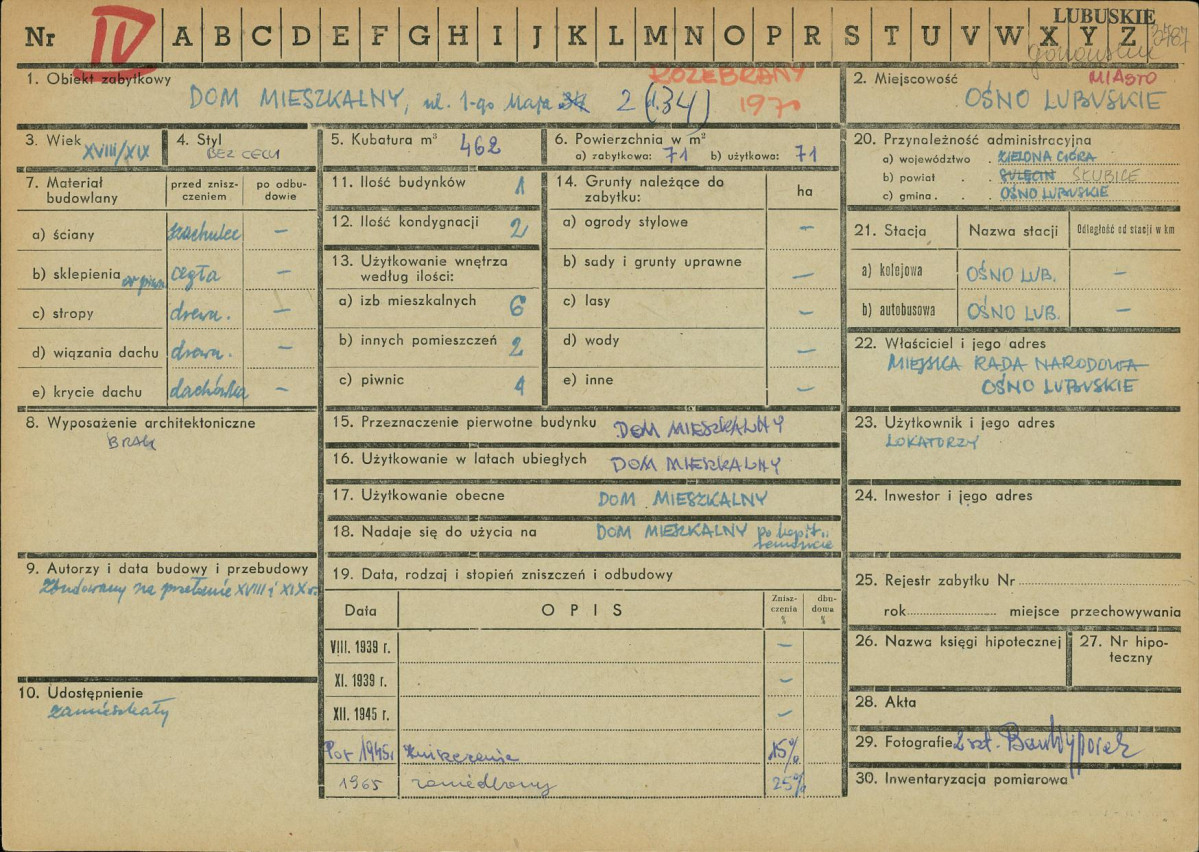 LUBUSKIE
Nr IV A B C D E F G H I J K L M N O P R S T U V W X Y Z
1. Obiekt zabytkowy
ROZEBRANY
DOM MIESZKALNY, ul. 1-go Maja 2 (d.34) 197
2. Miejscowość MIASTO
OŚNO LUBUSKIE
3. Wiek
XVIII/XIX
4. Styl
BEZ CECH
5. Kubatura m³ 462
6. Powierzchnia w m²
a) zabytkowa: 71 b) użytkowa: 71
20. Przynależność administracyjna
a) województwo . ZIELONA GÓRA
b) powiat . SULĘCIN SŁUBICE
c) gmina . OŚNO LUBUSKIE
7. Materiał budowlany
przed zniszczeniem
po odbudowie
a) ściany szachulec –
b) sklepienia cegła –
c) stropy drewn. –
d) wiązania dachu drewn. –
e) krycie dachu dachówka –
11. Ilość budynków 1
12. Ilość kondygnacji 2
13. Użytkowanie wnętrza
według ilości:
a) izb mieszkalnych 6
b) innych pomieszczeń 2
c) piwnic 1
14. Grunty należące do
zabytku: ha
a) ogrody stylowe –
b) sady i grunty uprawne –
c) lasy –
d) wody –
e) inne –
21. Stacja Nazwa stacji Odległość od stacji w km
a) kolejowa OŚNO LUB. –
b) autobusowa OŚNO LUB. –
22. Właściciel i jego adres
MIEJSKA RADA NARODOWA
OŚNO LUBUSKIE
8. Wyposażenie architektoniczne
BRAK
15. Przeznaczenie pierwotne budynku DOM MIESZKALNY
16. Użytkowanie w latach ubiegłych DOM MIESZKALNY
17. Użytkowanie obecne DOM MIESZKALNY
18. Nadaje się do użycia na DOM MIESZKALNY po kapit.
remoncie
23. Użytkownik i jego adres
LOKATORZY
24. Inwestor i jego adres
9. Autorzy i data budowy i przebudowy
Zbudowany na przełomie XVIII i XIX w.
10. Udostępnienie
zamieszkały
19. Data, rodzaj i stopień zniszczeń i odbudowy
Data OPIS Zniszczenia % dbudowa %
VIII. 1939 r. –
XI. 1939 r. –
XII. 1945 r. –
Por 1945r zniszczenia 15%
1965 zaniedbany 25%
25. Rejestr zabytku Nr
rok miejsce przechowywania
26. Nazwa księgi hipotecznej
27. Nr hipoteczny
28. Akta
29. Fotografie 2 szt.
30. Inwentaryzacja pomiarowa